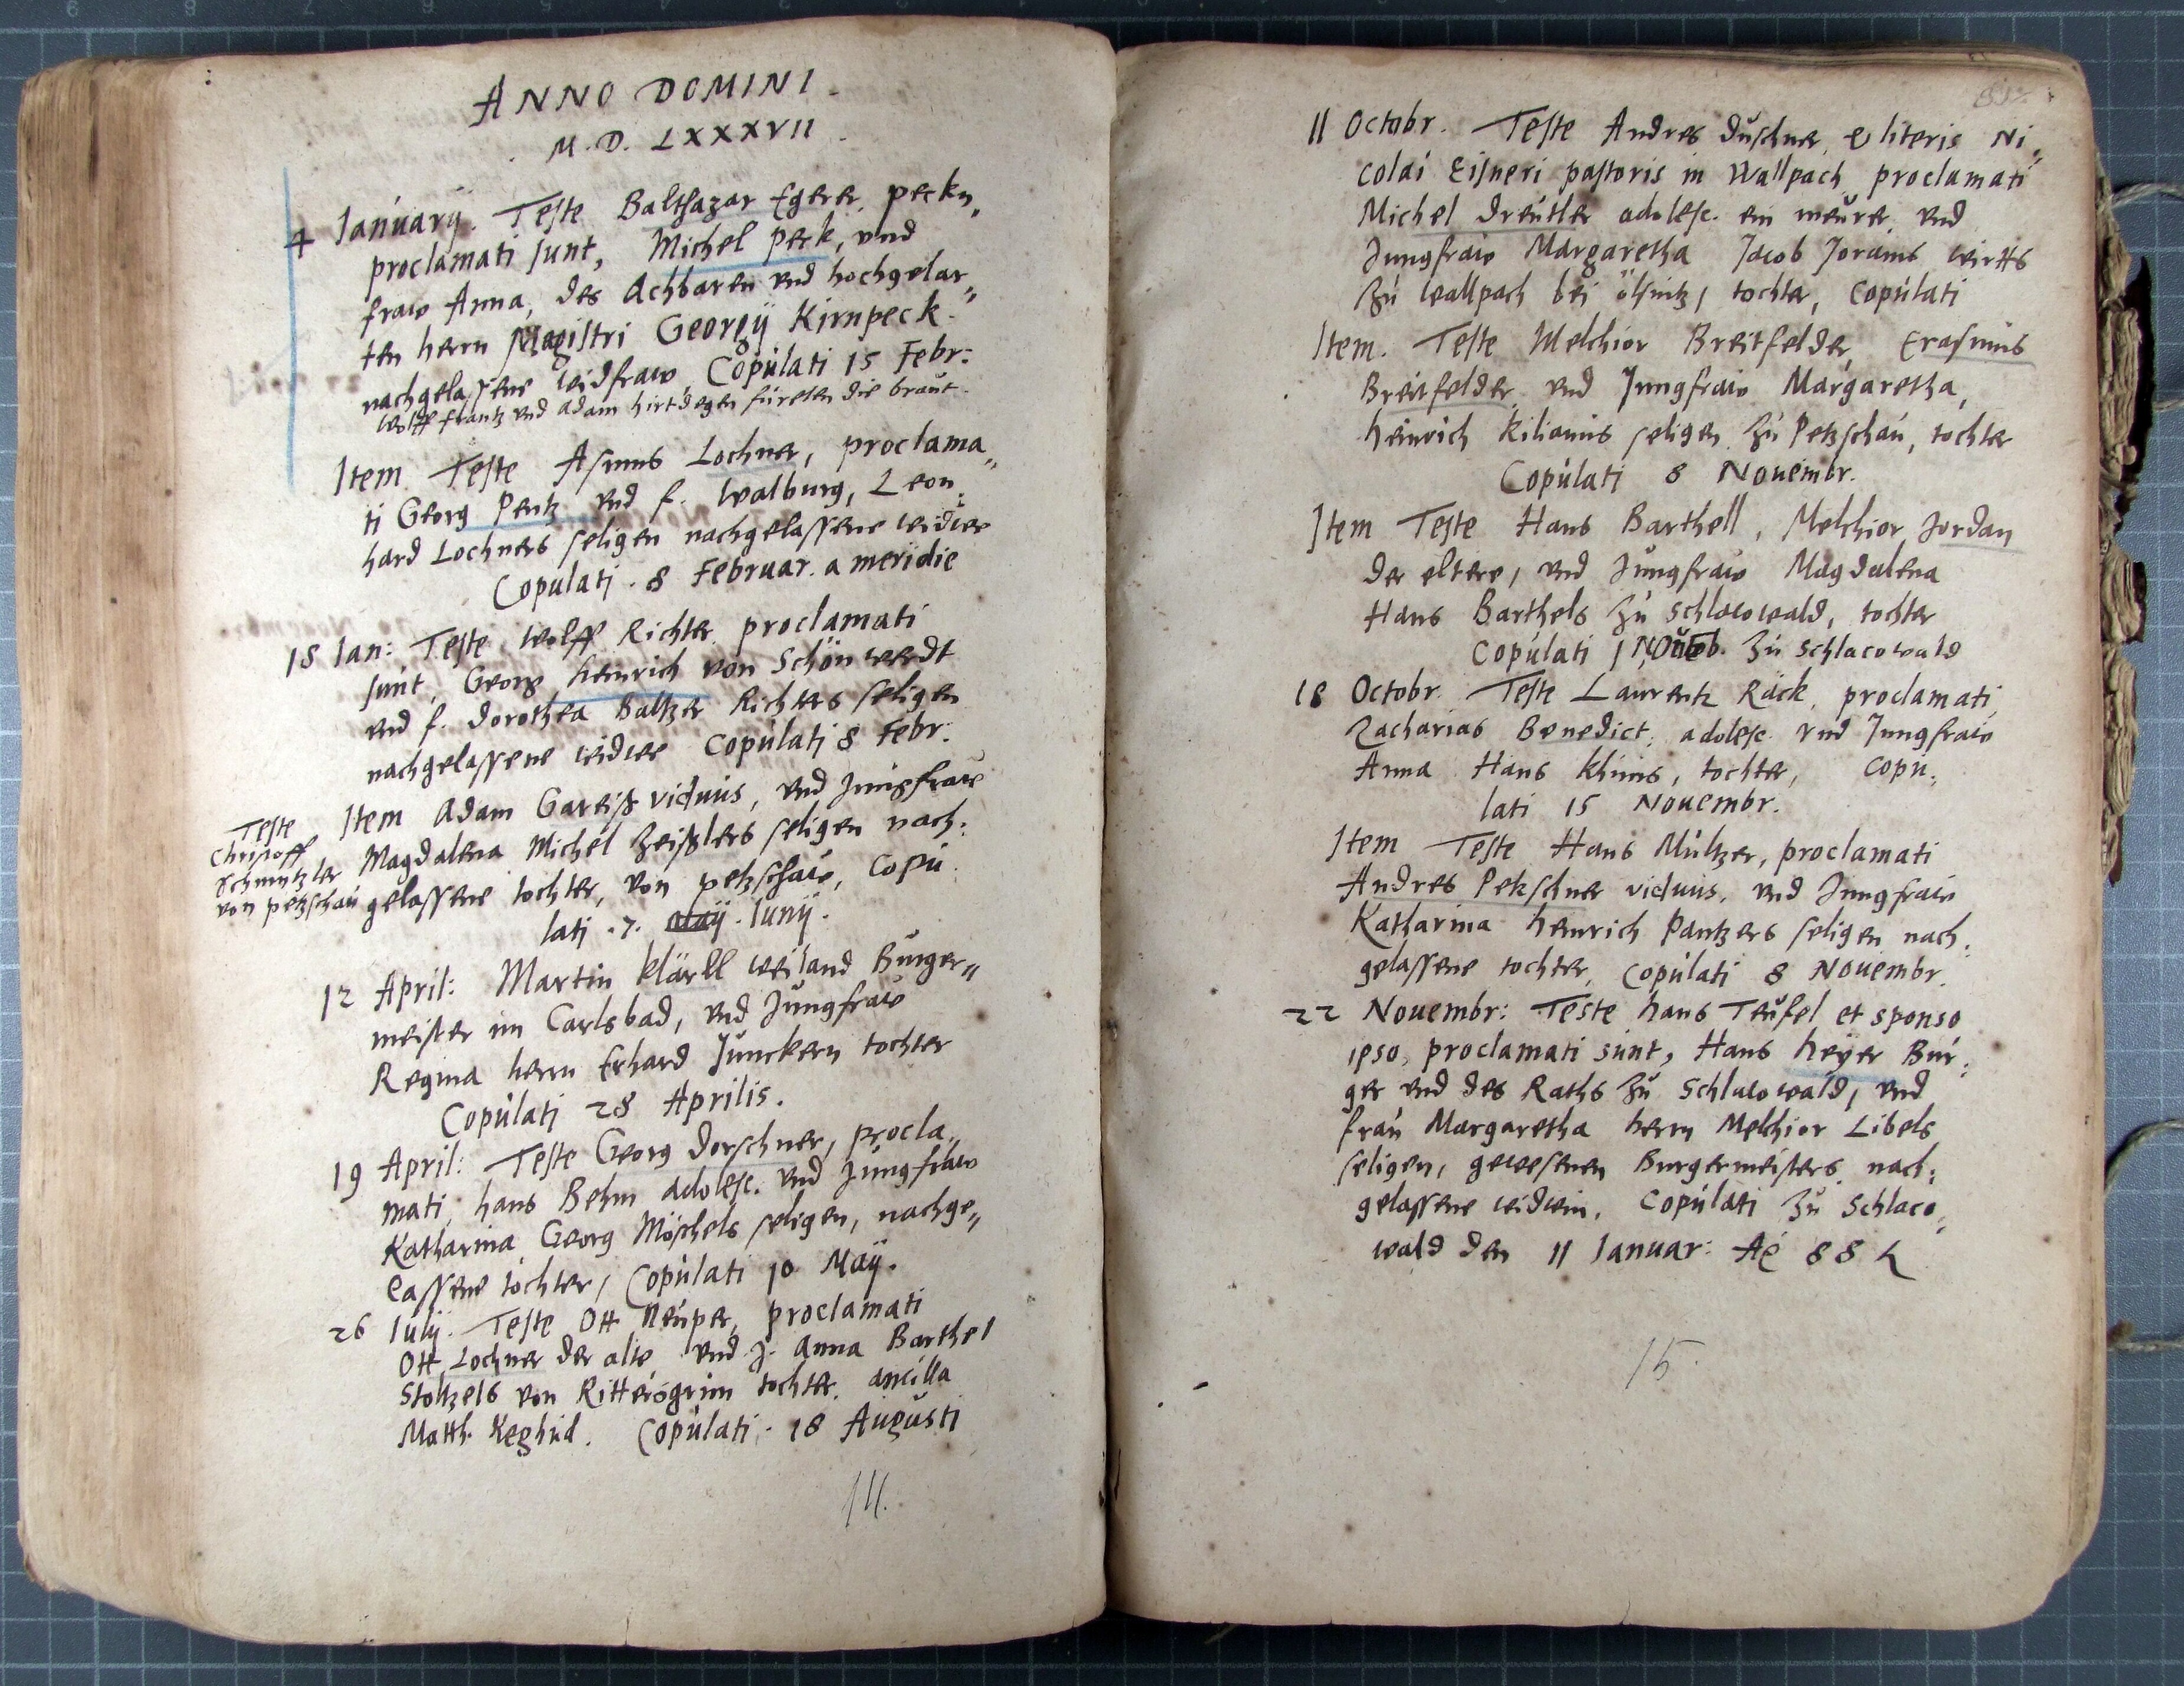 ANNO DOMINI.
M.D. LXXXVII.
4 Ianuarij. Teste Balthazar Egerer, peckn,,
proclamati sunt, Michel Peck, vnd
fraw Anna, des Achbaren vnd hochgelar,,
ten herrn Magistri Georgij Kirnpeck
nachgelassene widfraw, Copulati 15 Febr:
Wolff Frantz vnd Adam Hirtdegen füreten die braut.
Item Teste Asmus Lochner, proclama,,
ti Georg Pentz vnd f. Walburg, Leon:
hard Lochners seligen nachgelassene widwe
Copulati. 8 Februar. a meridie
18 Ian: Teste Wolff Richter proclamati
sunt, Georg Heinrich von Schönwerdt
vnd f. Dorothea Baltzer Richters seligen
nachgelassene widwe Copulati 8 Febr:
Teste
Christoff
Schmutzler
von petzschau
Item Adam Gareiß viduus, vnd Jungfraw
Magdalena Michel Zeißlers seligen nach:
gelassene tochter, von petzschaw, Copu
lati .7. Maij. Iunij.
12 April: Martin Klärll weiland Burger,,
meister im Carlsbad, vnd Jungfraw
Regina herrn Erhard Junckern tochter
Copulati 28 Aprilis.
19 April: Teste Georg Dorschner, procla,,
mati, hans Behm adolesc. vnd Jungfraw
Katharina, Georg Möschels seligen, nachge,,
lassene tochter, Copulati 10 Maij.
26 Iulij. Teste Ott Neuper, proclamati
Ott Lochner der alte vnd J. Anna Barthel
Stoltzels von Rittersgrün tochter, ancilla
Matth. Copulati. 18 Augusti
14.
11 Octobr. Teste Andres Duschner, e literis Ni,,
colai Eisneri pastoris in Wallpach, proclamati
Michel Dreutler adolesc. ein meurer, vnd
Jungfraw Margaretha Jacob Jorams wirtts
zu Wallpach bei ölsnitz, tochter, Copulati
Item. Teste Melchior Breitfelder, Erasmus
Breitfelder, vnd Jungfraw Margaretha,
Heinrich Kilianus seligen zu Petzschau, tochter
Copulati 8 Nouembr.
Item Teste Hans Barthell, Melchior Jordan
der eltere, vnd Jungfraw Magdalena
Hans Barthels zu Schlacowald, tochter
Copulati 1 Noueb. zu Schlacowald
18 Octobr. Teste Laurentz Räck, proclamati,
Zacharias Benedict, adolesc. vnd Jungfraw
Anna Hans Khuns, tochter, Copu:
lati 15 Nouembr.
Item Teste Hans Mültzer, proclamati
Andres Petzschner viduus, vnd Jungfraw
Katharina Heinrich Pantzers seligen nach:
gelassene tochter, Copulati 8 Nouembr.
22 Nouembr: Teste hans Teufel et sponso
ipso, proclamati sunt, Hans Heyer Bur:
ger vnd des Raths zu Schlacowald, vnd
frau Margaretha herrn Melchior Libels
seligen, gewesenen Burgermeisters nach:
gelassene widwin, Copulati zu Schlaco,,
wald den 11 Ianuar: Aº 88
15.